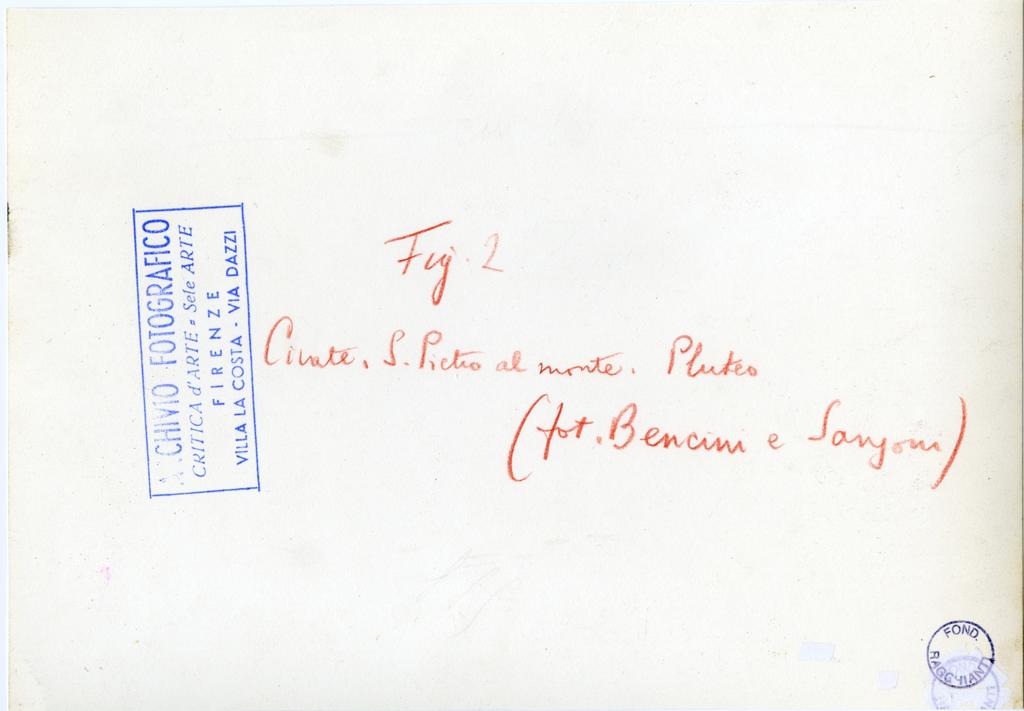 ARCHIVIO FOTOGRAFICO
CRITICA d'ARTE - Sele ARTE
FIRENZE
VILLA LA COSTA - VIA DAZZI
Fig. 2
Civate. S. Pietro al monte. Pluteo
(fot. Bencini e Sansoni)
FOND.
RAGGHIANTI